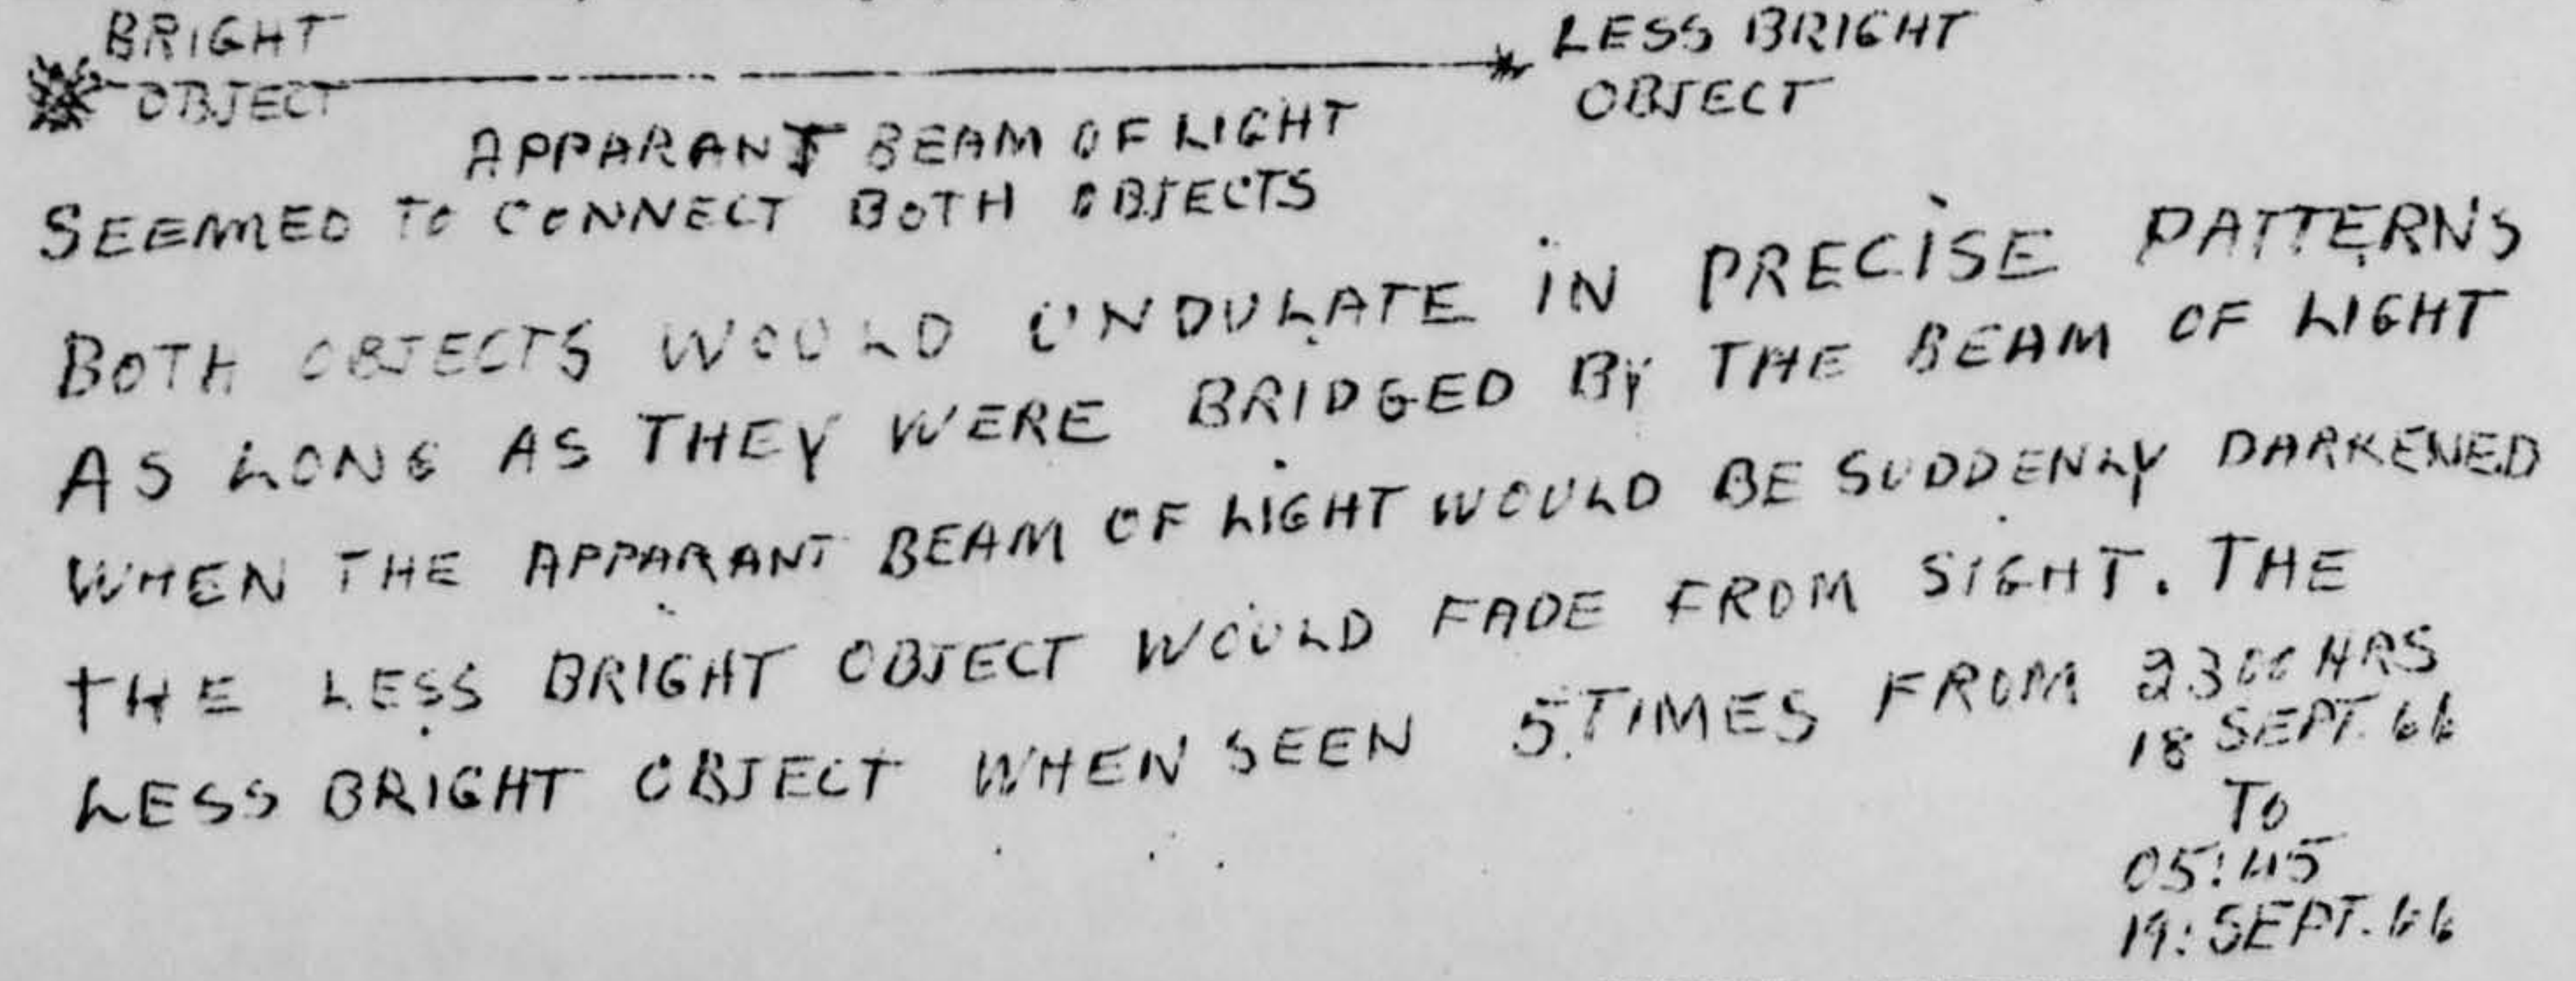 BRIGHT
OBJECT
LESS BRIGHT
OBJECT
APPARANT BEAM OF LIGHT
SEEMED TO CONNECT BOTH OBJECTS
BOTH OBJECTS WOULD UNDULATE IN PRECISE PATTERNS
AS LONG AS THEY WERE BRIDGED BY THE BEAM OF LIGHT
WHEN THE APPARANT BEAM OF LIGHT WOULD BE SUDDENLY DARKENED
THE LESS BRIGHT OBJECT WOULD FADE FROM SIGHT. THE
LESS BRIGHT OBJECT WHEN SEEN 5 TIMES FROM 2300 HRS
18 SEPT. 66
TO
05:45
19: SEPT. 66